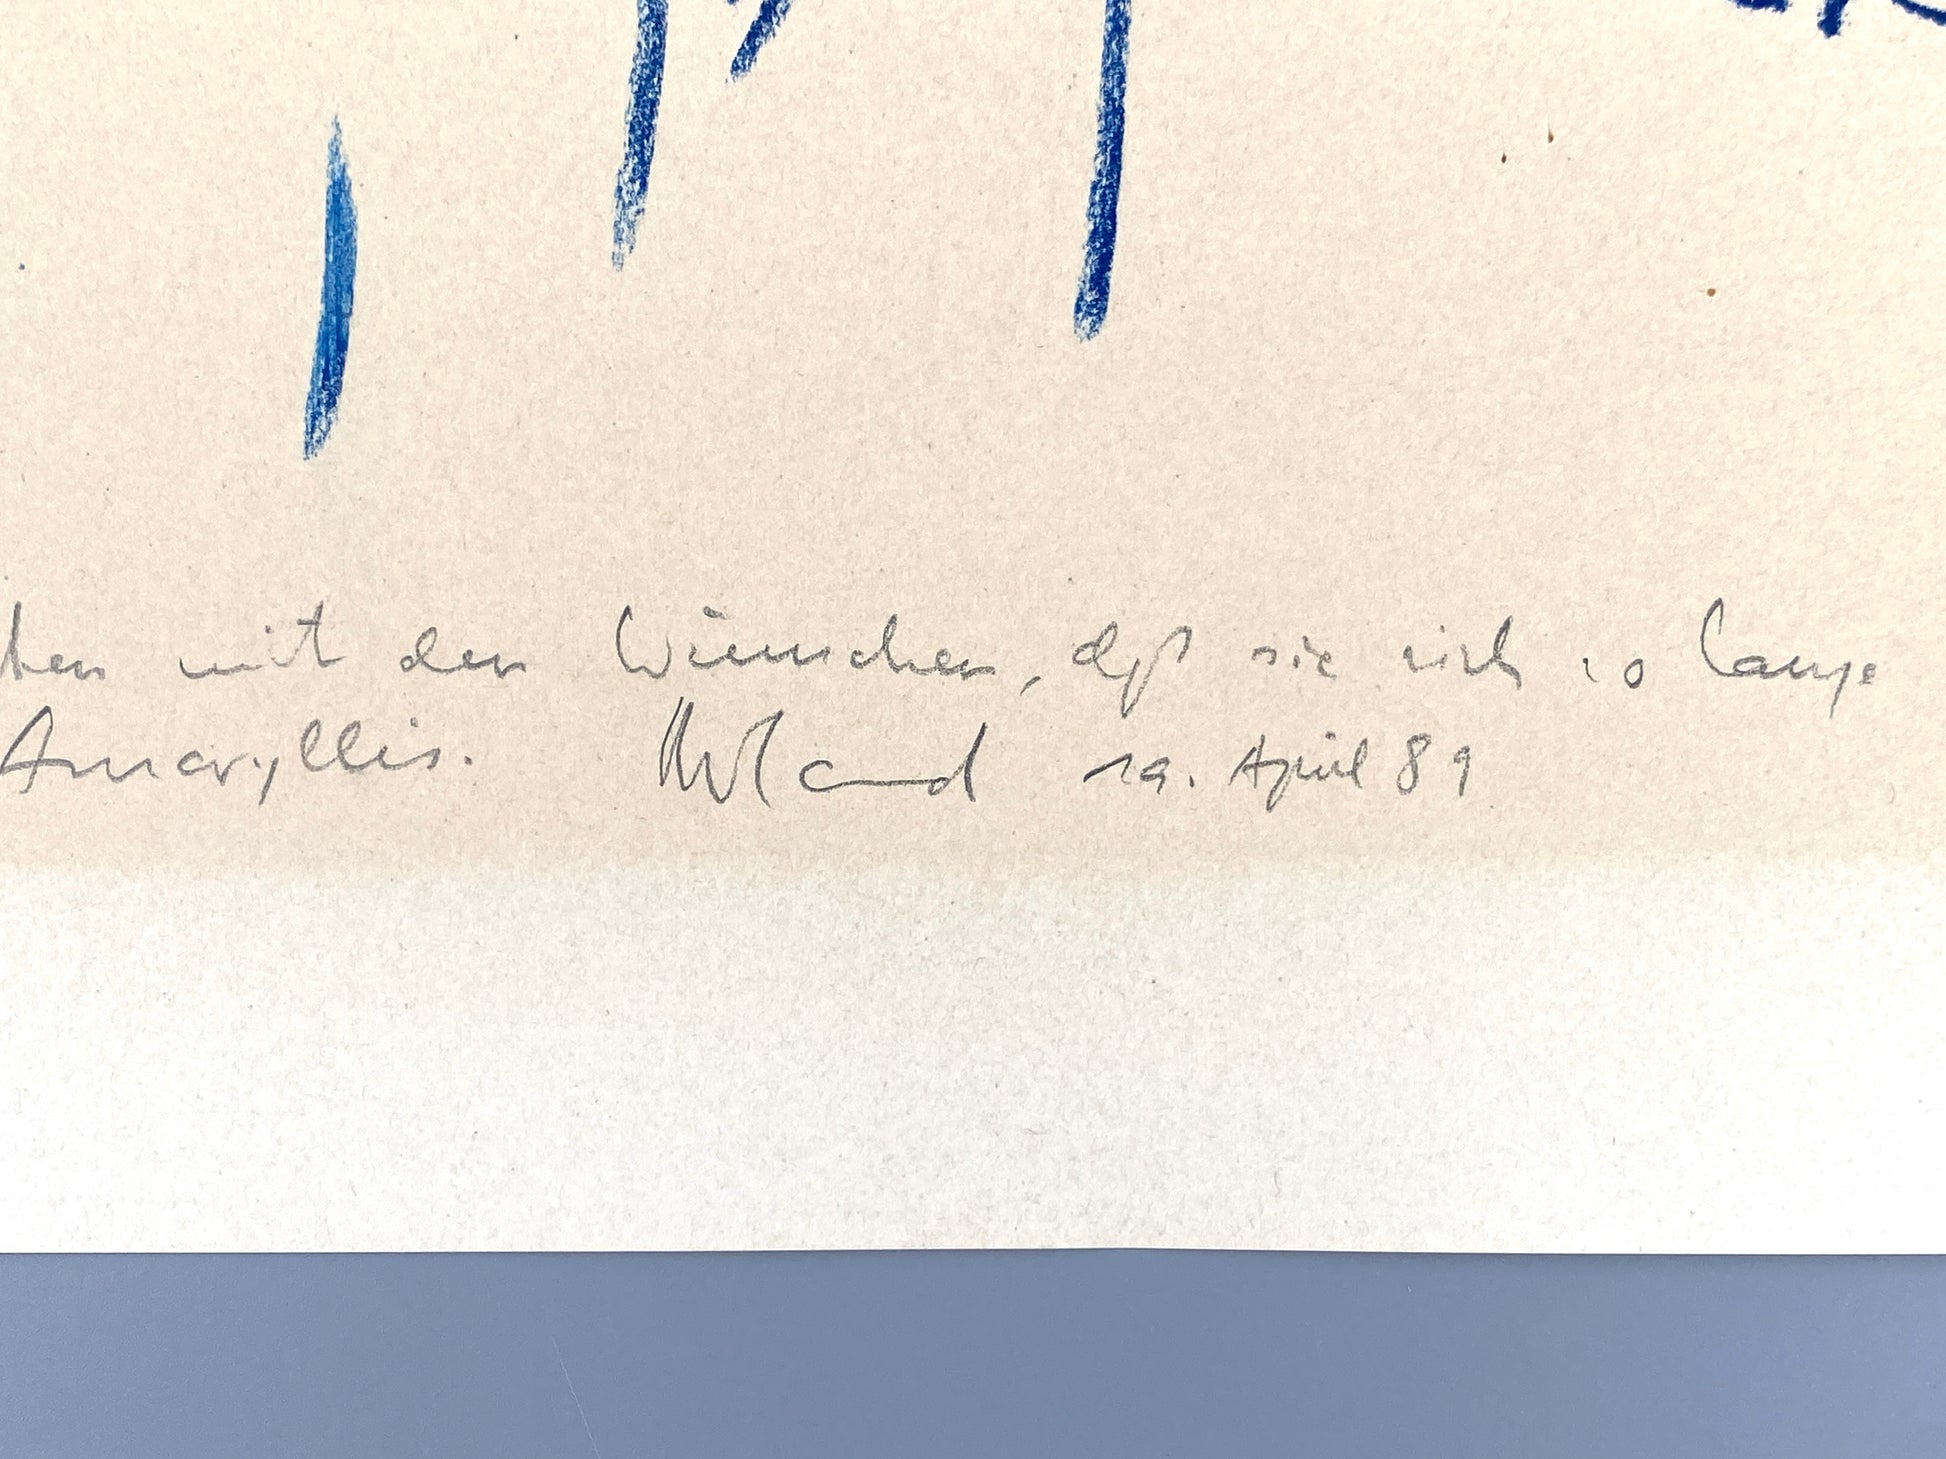 hen mit den Wünschen, daß sie sich so lange
Amaryllis. 19. April 89